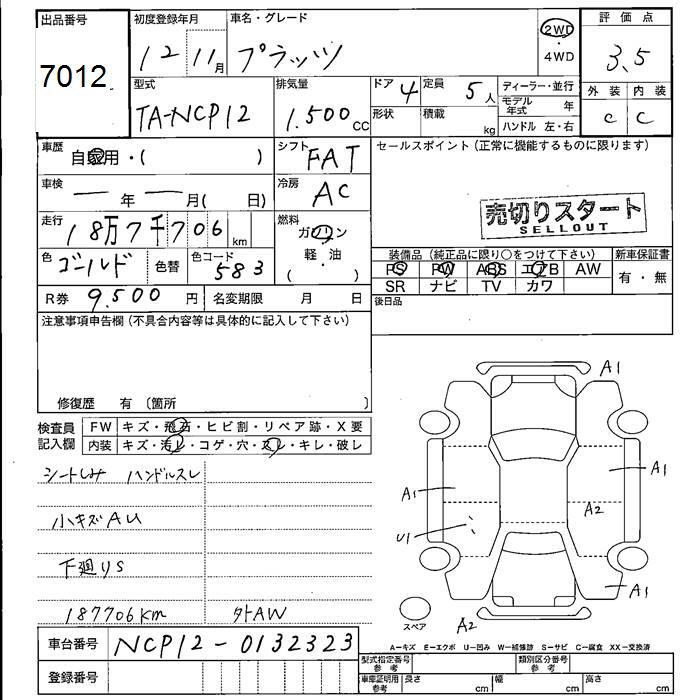 出品番号 初度登録年月 車名・グレード 評価点
7012 12年11月 プラッツ 2WD・4WD 3.5
外装 内装
C C
型式 排気量 ドア 定員 ディーラー・並行
TA-NCP12 1.500cc 4 5人 モデル年式 年
形状 積載 kg ハンドル 左・右
車歴 自家用・( ) シフト FAT セールスポイント(正常に機能するものに限ります)
車検 ー年ー月( 日) 冷房 AC
走行 18万7千706km 燃料 ガソリン 軽・油 ( ・ )
売切りスタート
SELLOUT
色 ゴールド 色替 色コード 583
装備品(純正品に限り○をつけて下さい) 新車保証書
PS PW ABS エアB AW 有・無
SR ナビ TV カワ
R券 9.500円 名変期限 月 日 後日品
注意事項申告欄(不具合内容等は具体的に記入して下さい)
修復歴 有(箇所 )
検査員記入欄 FW キズ・飛石・ヒビ割・リペア跡・X要
内装 キズ・汚レ・コゲ・穴・スレ・キレ・破レ
シートしみ ハンドルスレ
小キズAU
下廻りS
187706km 外AW
A1
A1
A1
A2
U1
A1
A2
スペア
A―キズ E―エクボ U―凹み W―補修跡 S―サビ C―腐食 XX―交換済
車台番号 NCP12-0132323
登録番号
型式指定番号 参考 類別区分番号 参考
車庫証明用 参考 長さ cm 幅 cm 高さ cm